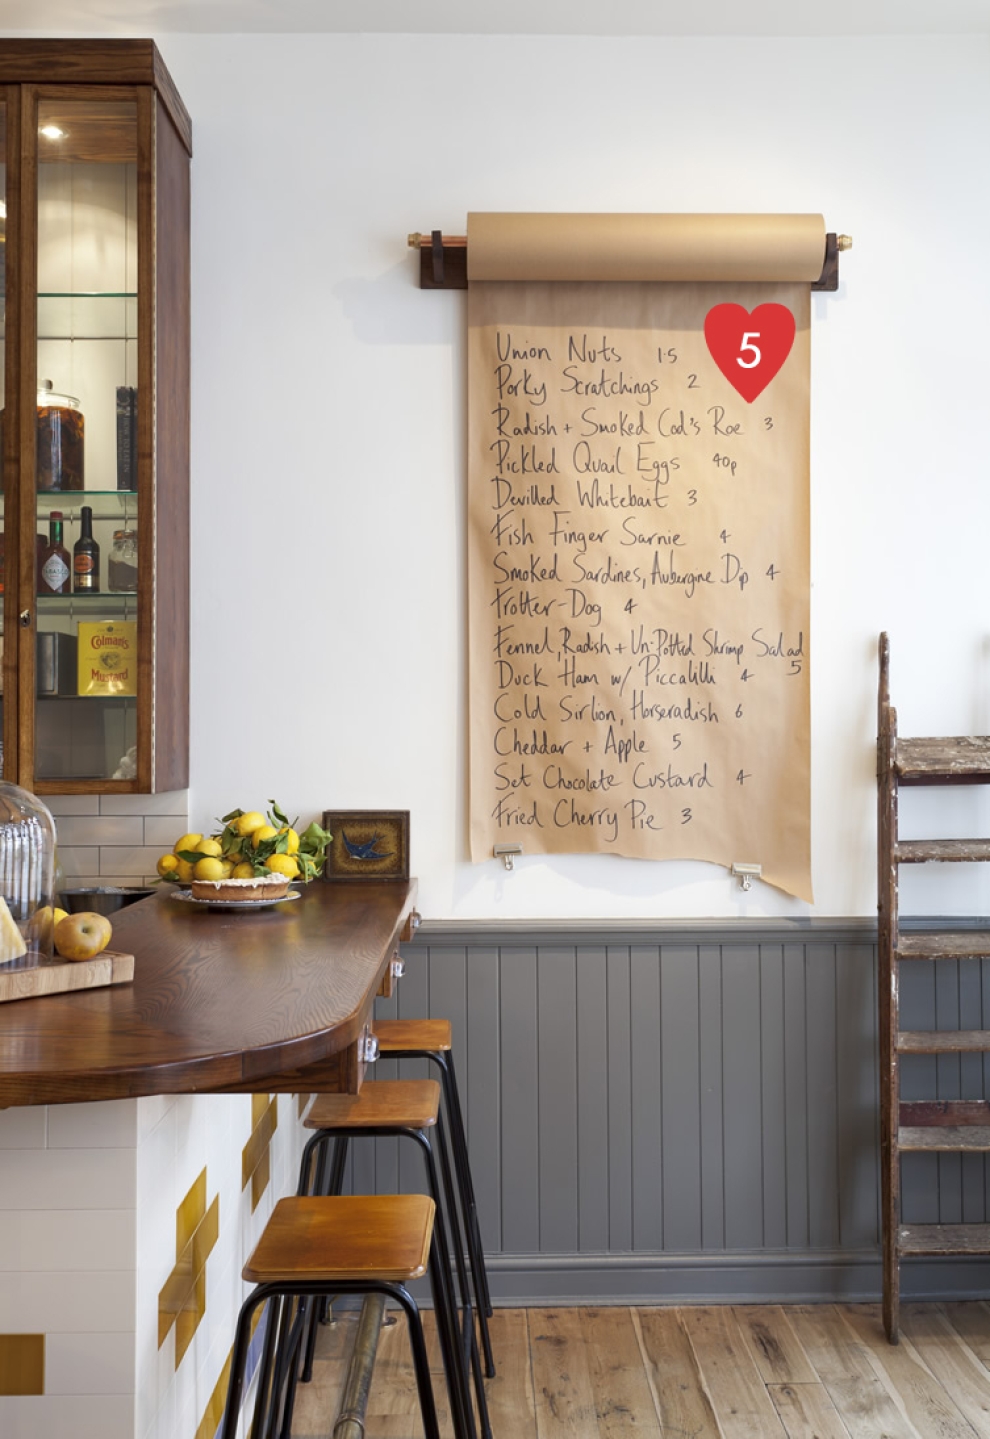 5
Union Nuts 1.5
Porky Scratchings 2
Radish + Smoked Cod's Roe 3
Pickled Quail Eggs 40p
Devilled Whitebait 3
Fish Finger Sarnie 4
Smoked Sardines, Aubergine Dip 4
Trotter-Dog 4
Fennel, Radish + Un-Potted Shrimp Salad
5
Duck Ham w/ Piccalilli 4
Cold Sirlion, Horseradish 6
Cheddar + Apple 5
Set Chocolate Custard 4
Fried Cherry Pie 3
TABASCO
Colman's
Mustard